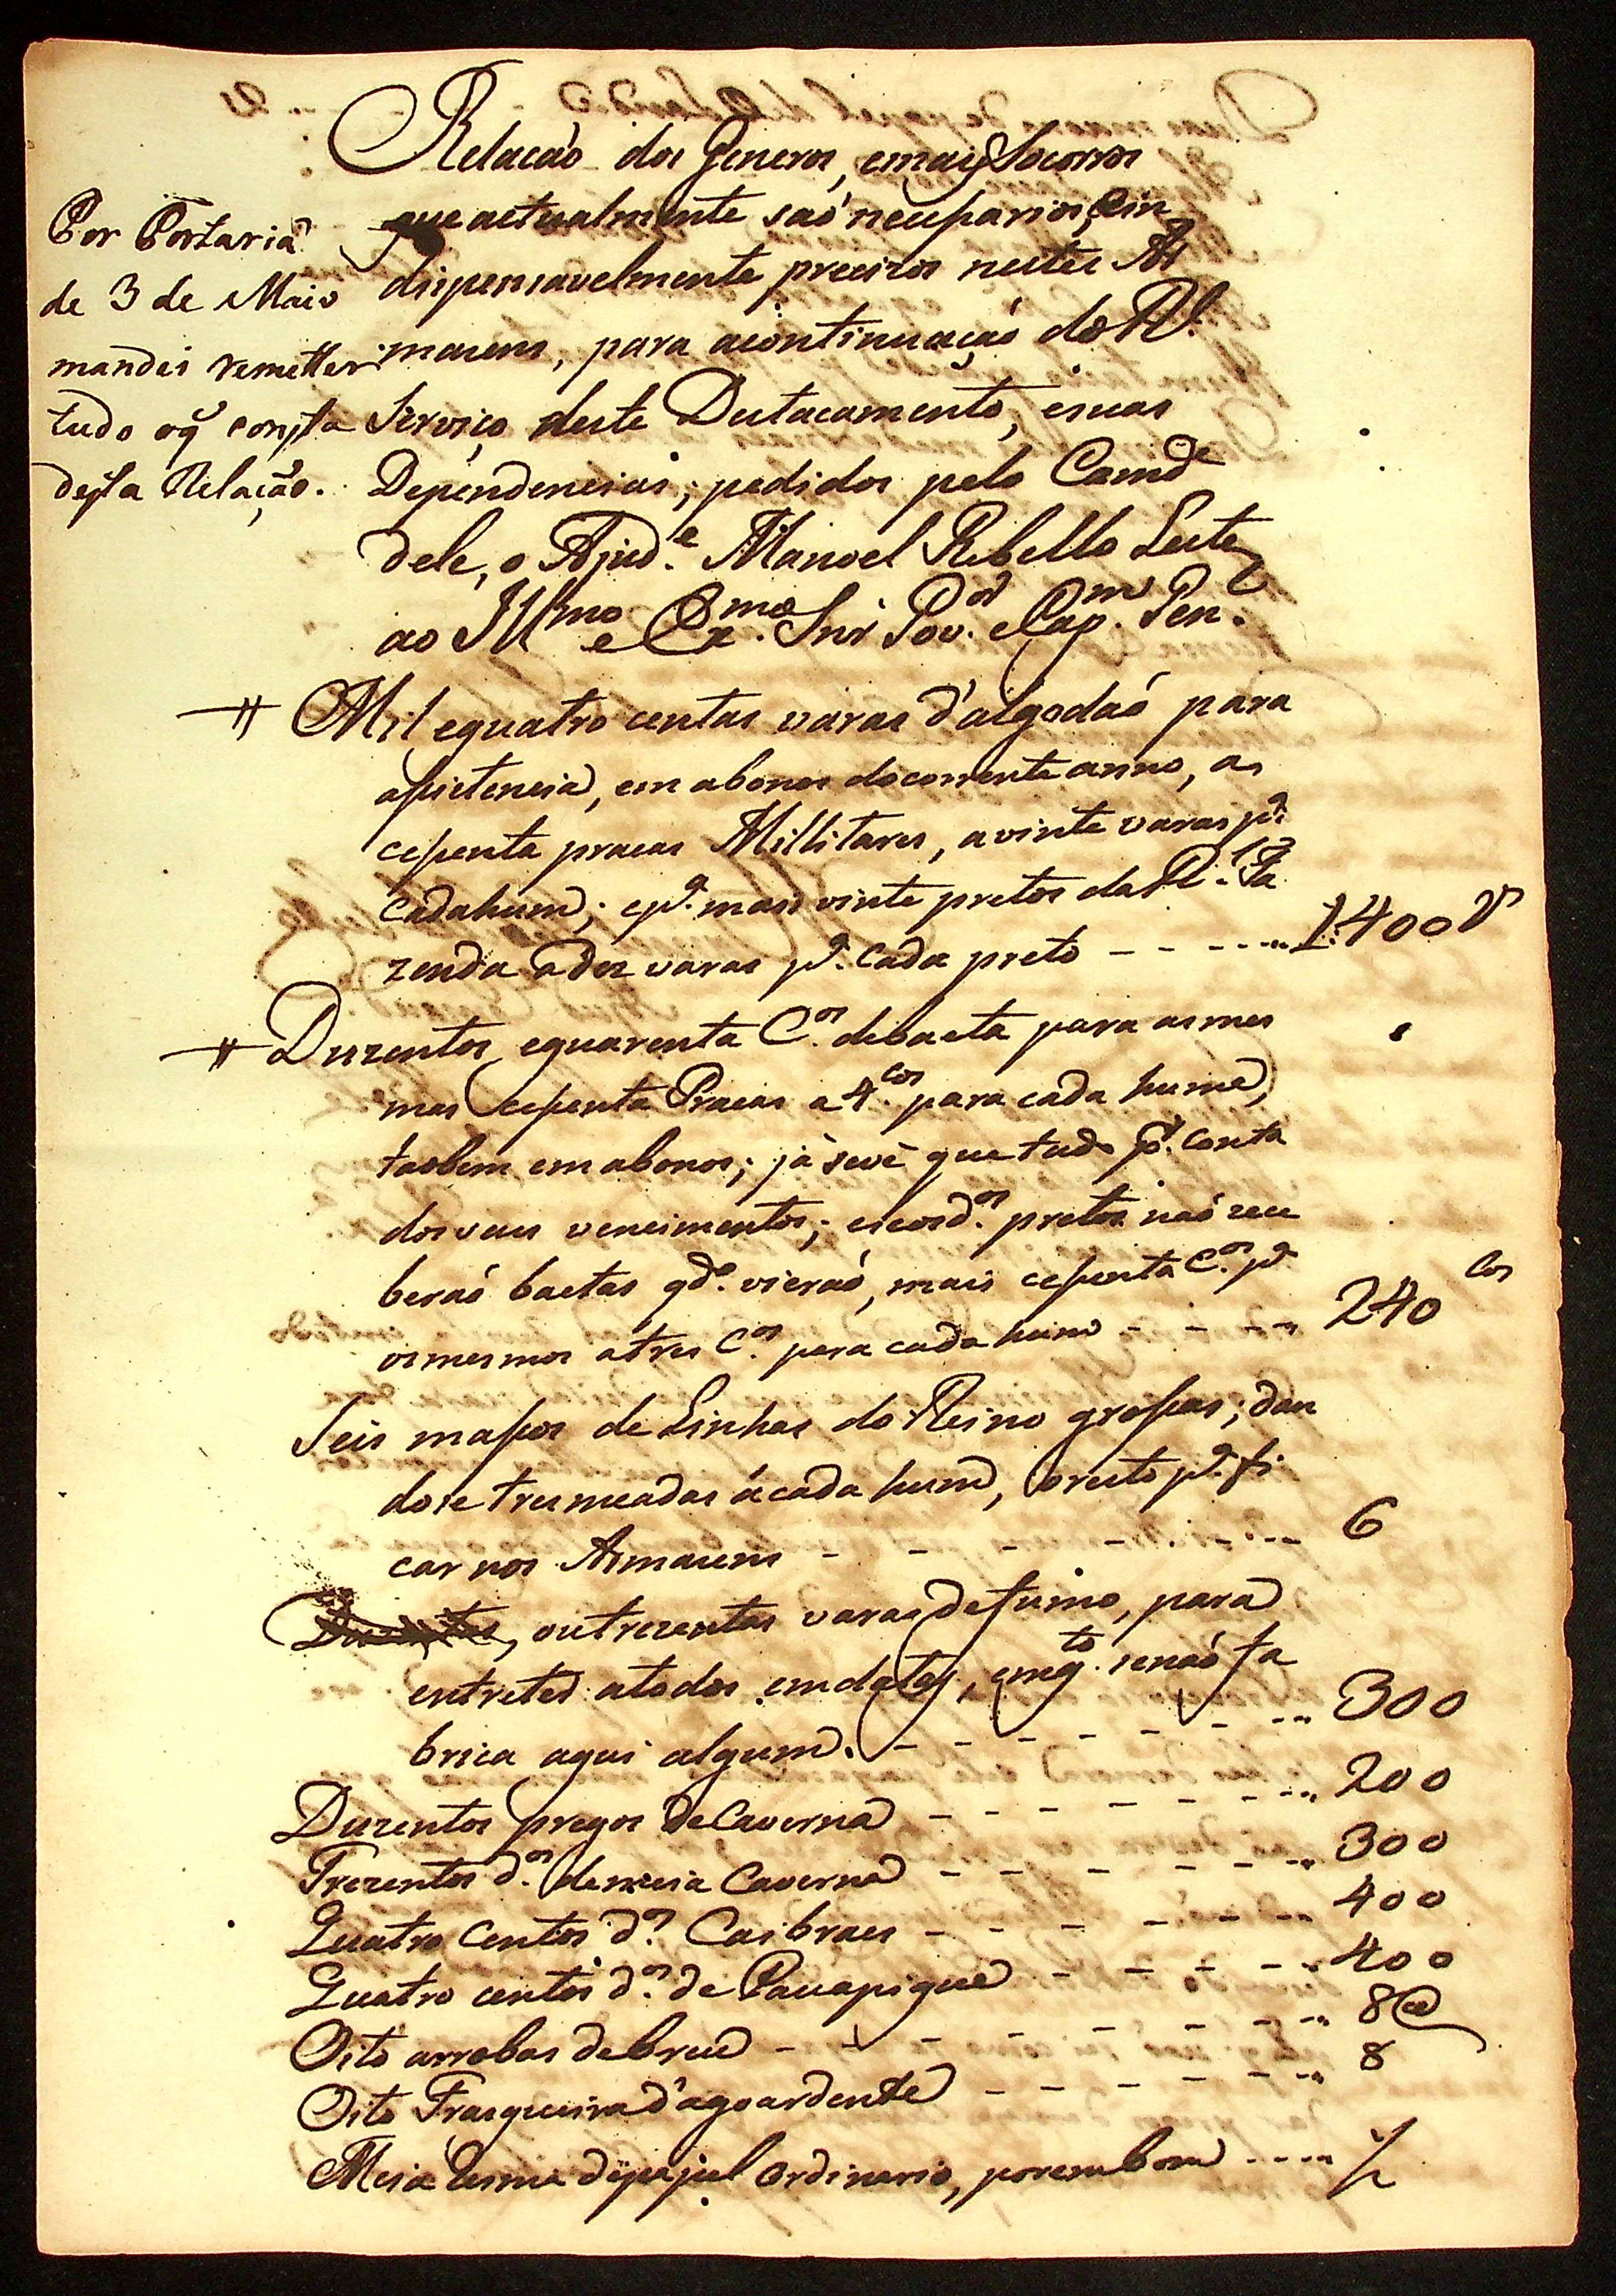 Relacaó dos Generos, emais Socorros
que actualmente saó necessarios, ein
dispensavelmente precizos nestes Ar
mazens, para acontinuaçaó do Rl.
Serviço deste Destacamento, esuas
Dependencias; pedidos pelo Comde
dele, o Ajude. Manoel Rebello Leite
ao Illmo e Exmo. Snr Gov.or eCapm. Gen.l
Por Portaria
de 3 de Maio
mandei remetter
tudo oq̃ consta
desta Relação.
Mil equatro centas varas d'algodaó para
assistencia, em abonos docorrente anno, as
cessenta pracas Millitares, avinte varas pa.
cadahum; epa. mais vinte pretos da Rl. Fa
zenda adez varas pa. cada preto - - - - - 1:400 V
Duzentos equarenta Cos. debaeta para asmes
mas cessenta Pracas a 4.cos para cada huma,
taobem em abonos; já sevê que tudo pr. conta
dosseus vencimentos; eseosdos. pretos naó rece
beraó baetas qdo. vieraó, mais cessenta Cos. pa
osmesmos atres Cos. para cada hum - - - - 240 Cos
Seis massos de Linhas do Reino grossas; dan
dose tresmeadas ácada hum, orestopa. fi
car nos Armazens - - - - - - - 6
Duzentas, outrezentas varas defumo, para
entreter atodos emdatas, emqto. senaó fa
brica aqui algum. - - - - - - - 300
Duzentos pregos deCaverna - - - - - - 200
Trezentos dos. demeia Caverna - - - - - - 300
Quatro Centos dos. Caibraes - - - - - - 400
Quatro centos dos. de Pauapique - - - - - 400
Oito arrobas debreu - - - - - - - 8@
Oito Frasqueiras d'agoardente - - - - - - 8
Meia resma depapel ordinario, porembom - - - - ½